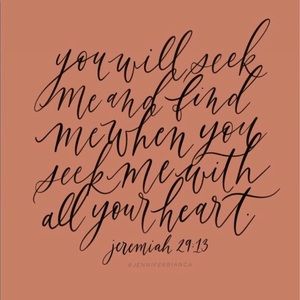 you will seek
me and find
me when you
seek me with
all your heart.
jeremiah 29:13
@JENNIFERBIANCA